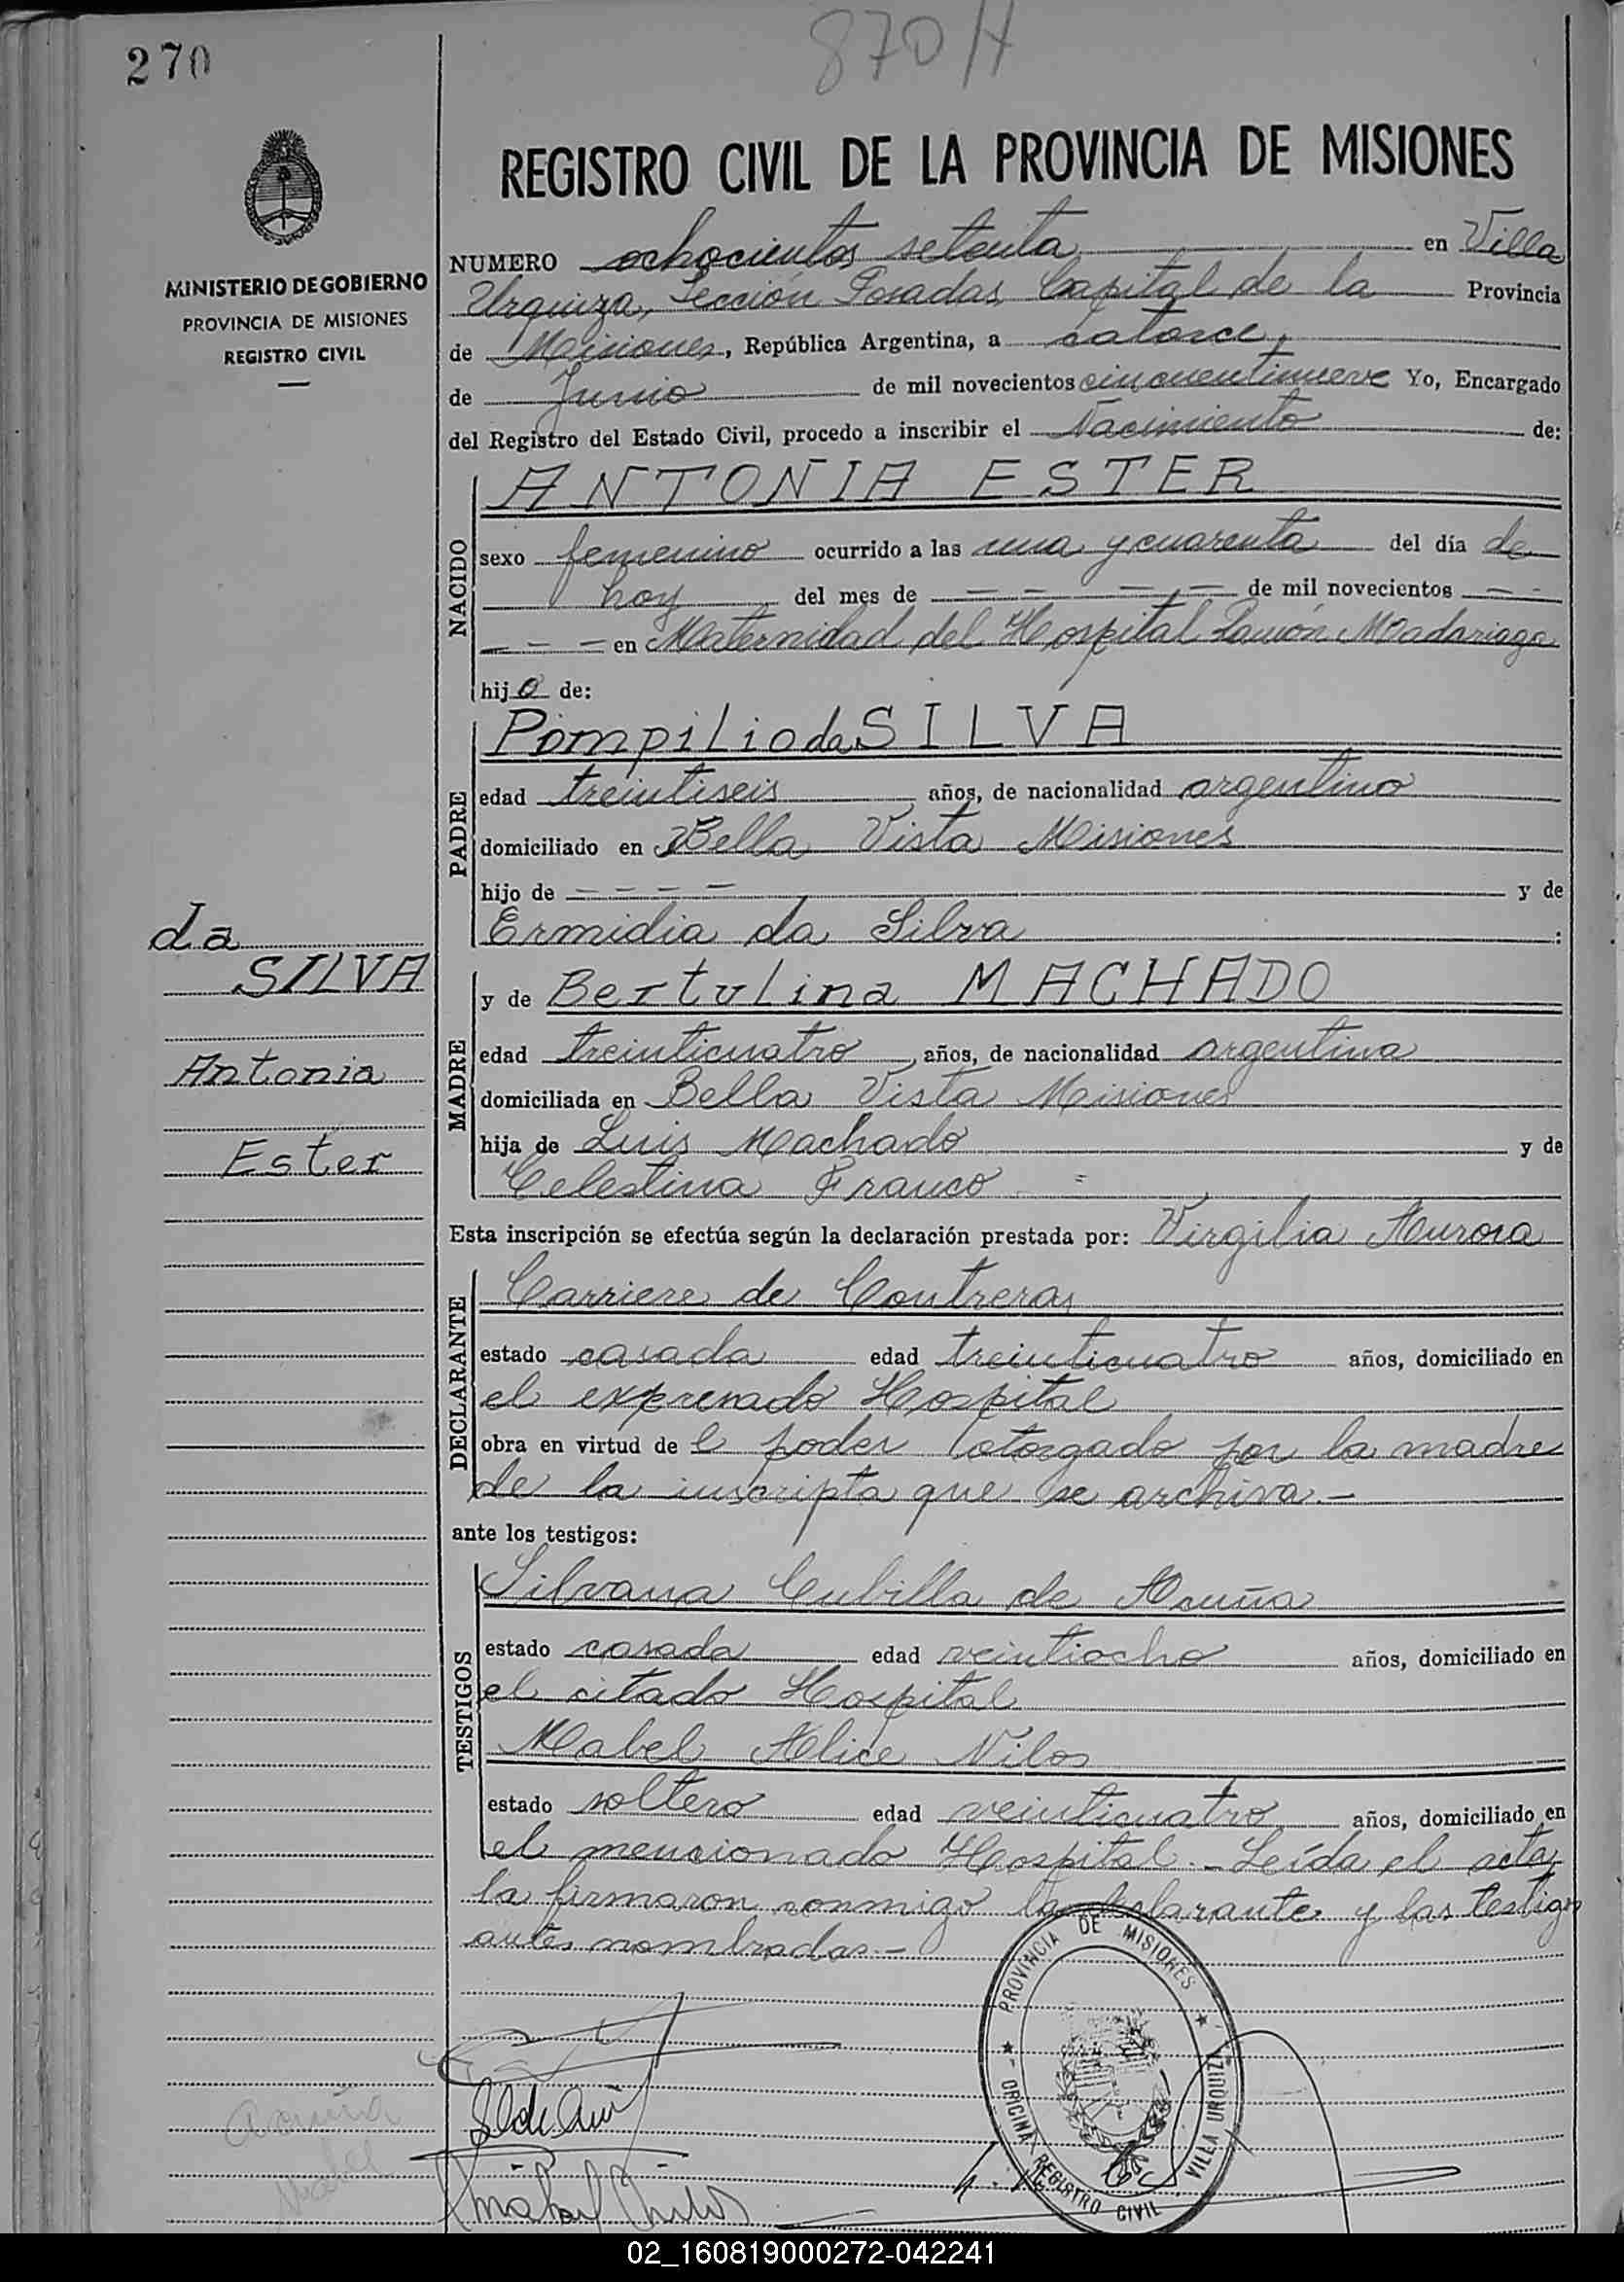 270
870 H
MINISTERIO DE GOBIERNO
PROVINCIA DE MISIONES
REGISTRO CIVIL
REGISTRO CIVIL DE LA PROVINCIA DE MISIONES
NUMERO ochocientos setenta en Villa
Urquiza, Sección Posadas Capital de la Provincia
de Misiones, República Argentina, a catorce,
de Junio de mil novecientos cincuentinueve Yo, Encargado
del Registro del Estado Civil, procedo a inscribir el Nacimiento de:
NACIDO
ANTONIA ESTER
sexo femenino ocurrido a las una y cuarenta del día de
hoy del mes de — — — — de mil novecientos — —
— — — en Maternidad del Hospital Ramón Madariaga
hijo de:
PADRE
Pompilio da SILVA
edad treintiseis años, de nacionalidad argentino
domiciliado en Bella Vista Misiones
hijo de — — — — y de
Ermidia da Silva :
da
SILVA
Antonia
Ester
MADRE
y de Bertulina MACHADO
edad treinticuatro años, de nacionalidad argentina
domiciliada en Bella Vista Misiones
hija de Luis Machado y de
Celestina Franco =
Esta inscripción se efectúa según la declaración prestada por: Virgilia Aurora
DECLARANTE
Carriere de Contreras
estado casada edad treinticuatro años, domiciliado en
el expresado Hospital
obra en virtud de l poder otorgado por la madre
de la inscripta que se archiva.-
ante los testigos:
TESTIGOS
Silvana Cubilla de Acuña
estado casada edad veintiocho años, domiciliado en
el citado Hospital
Mabel Alice Nilos
estado soltero edad veinticuatro años, domiciliado en
el mencionado Hospital.- Leída el acta
la firmaron conmigo la declarante y las testigos
antes nombradas.-
PROVINCIA DE MISIONES
OFICINA REGISTRO CIVIL
VILLA URQUIZA
Acuña
Mabel
02_160819000272-042241